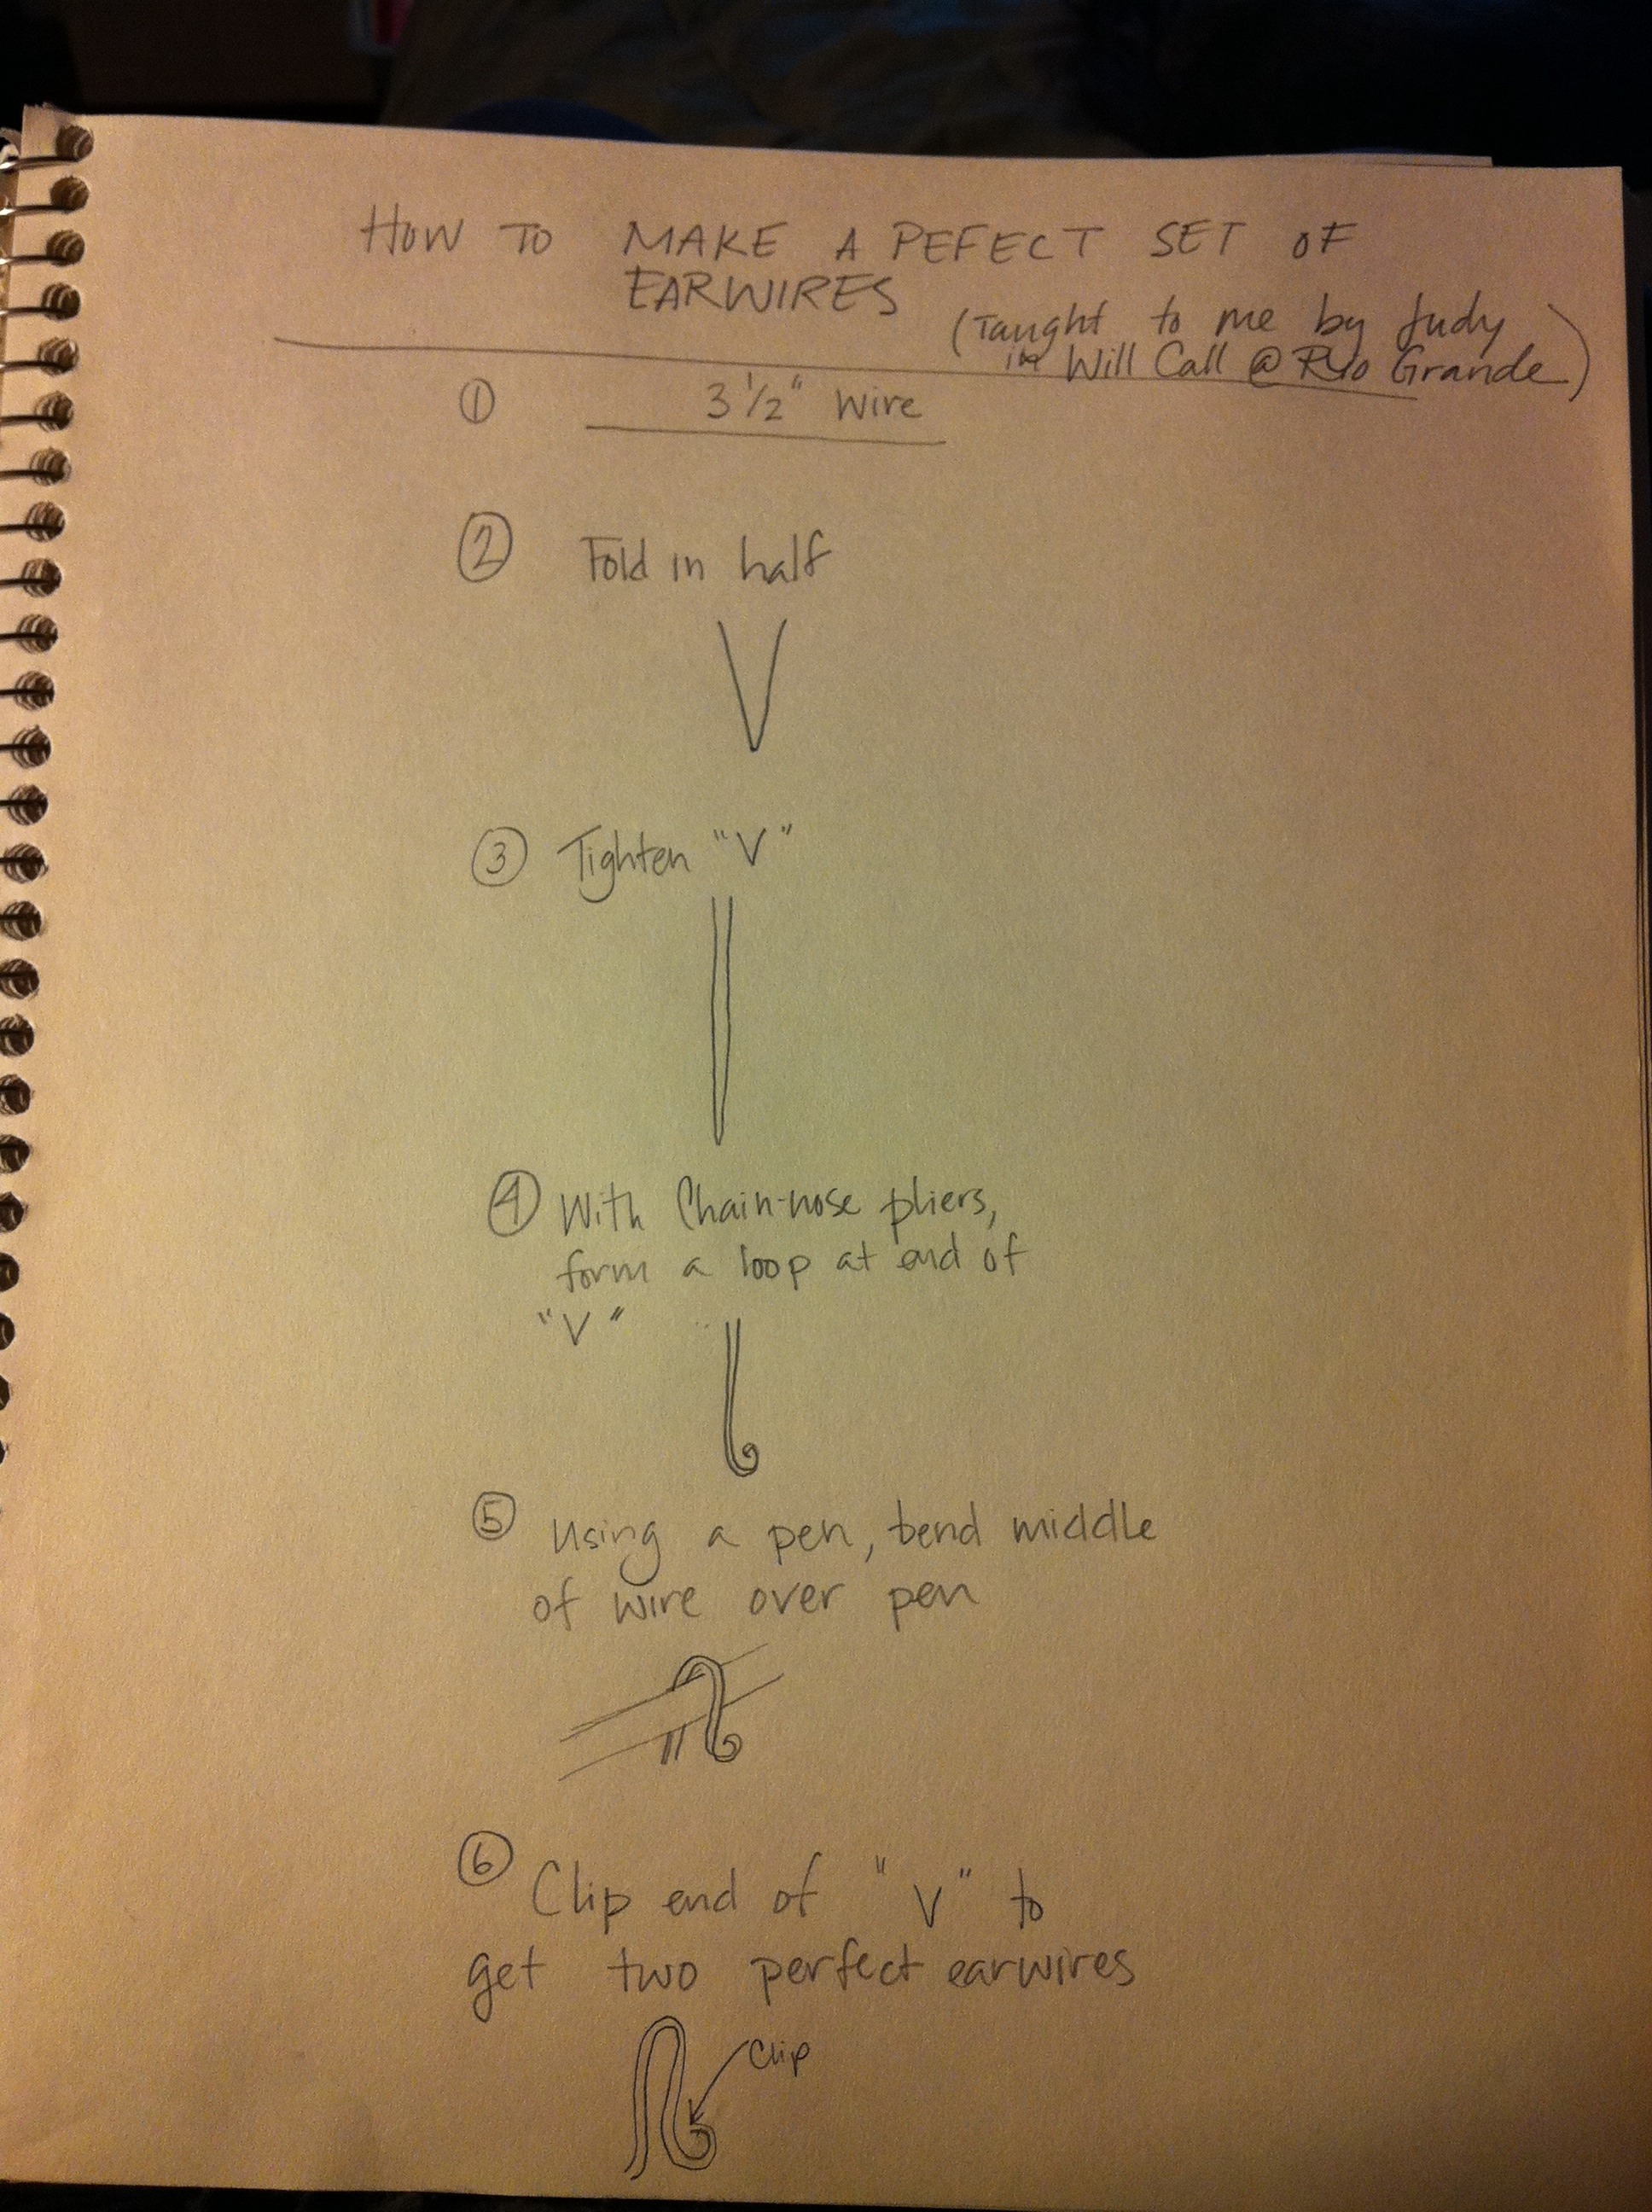 HOW TO MAKE A PEFECT SET OF
EARWIRES
(Taught to me by Judy
in Will Call @ Rio Grande)
① 3 1/2" Wire
② Fold in half
③ Tighten "V"
④ With Chain-nose pliers,
form a loop at end of
"V"
⑤ Using a pen, bend middle
of wire over pen
⑥ Clip end of "V" to
get two perfect earwires
Clip